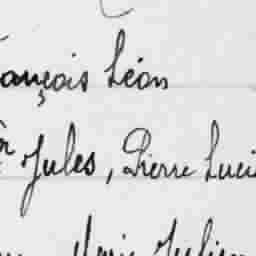 ançois Léon
Jules, Pierre Luci
Julien